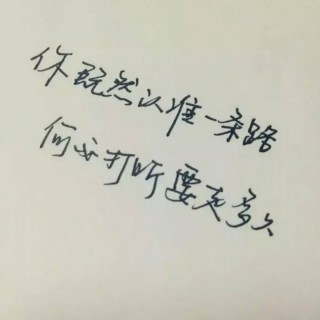 你既然认准一条路
何必打听要走多久